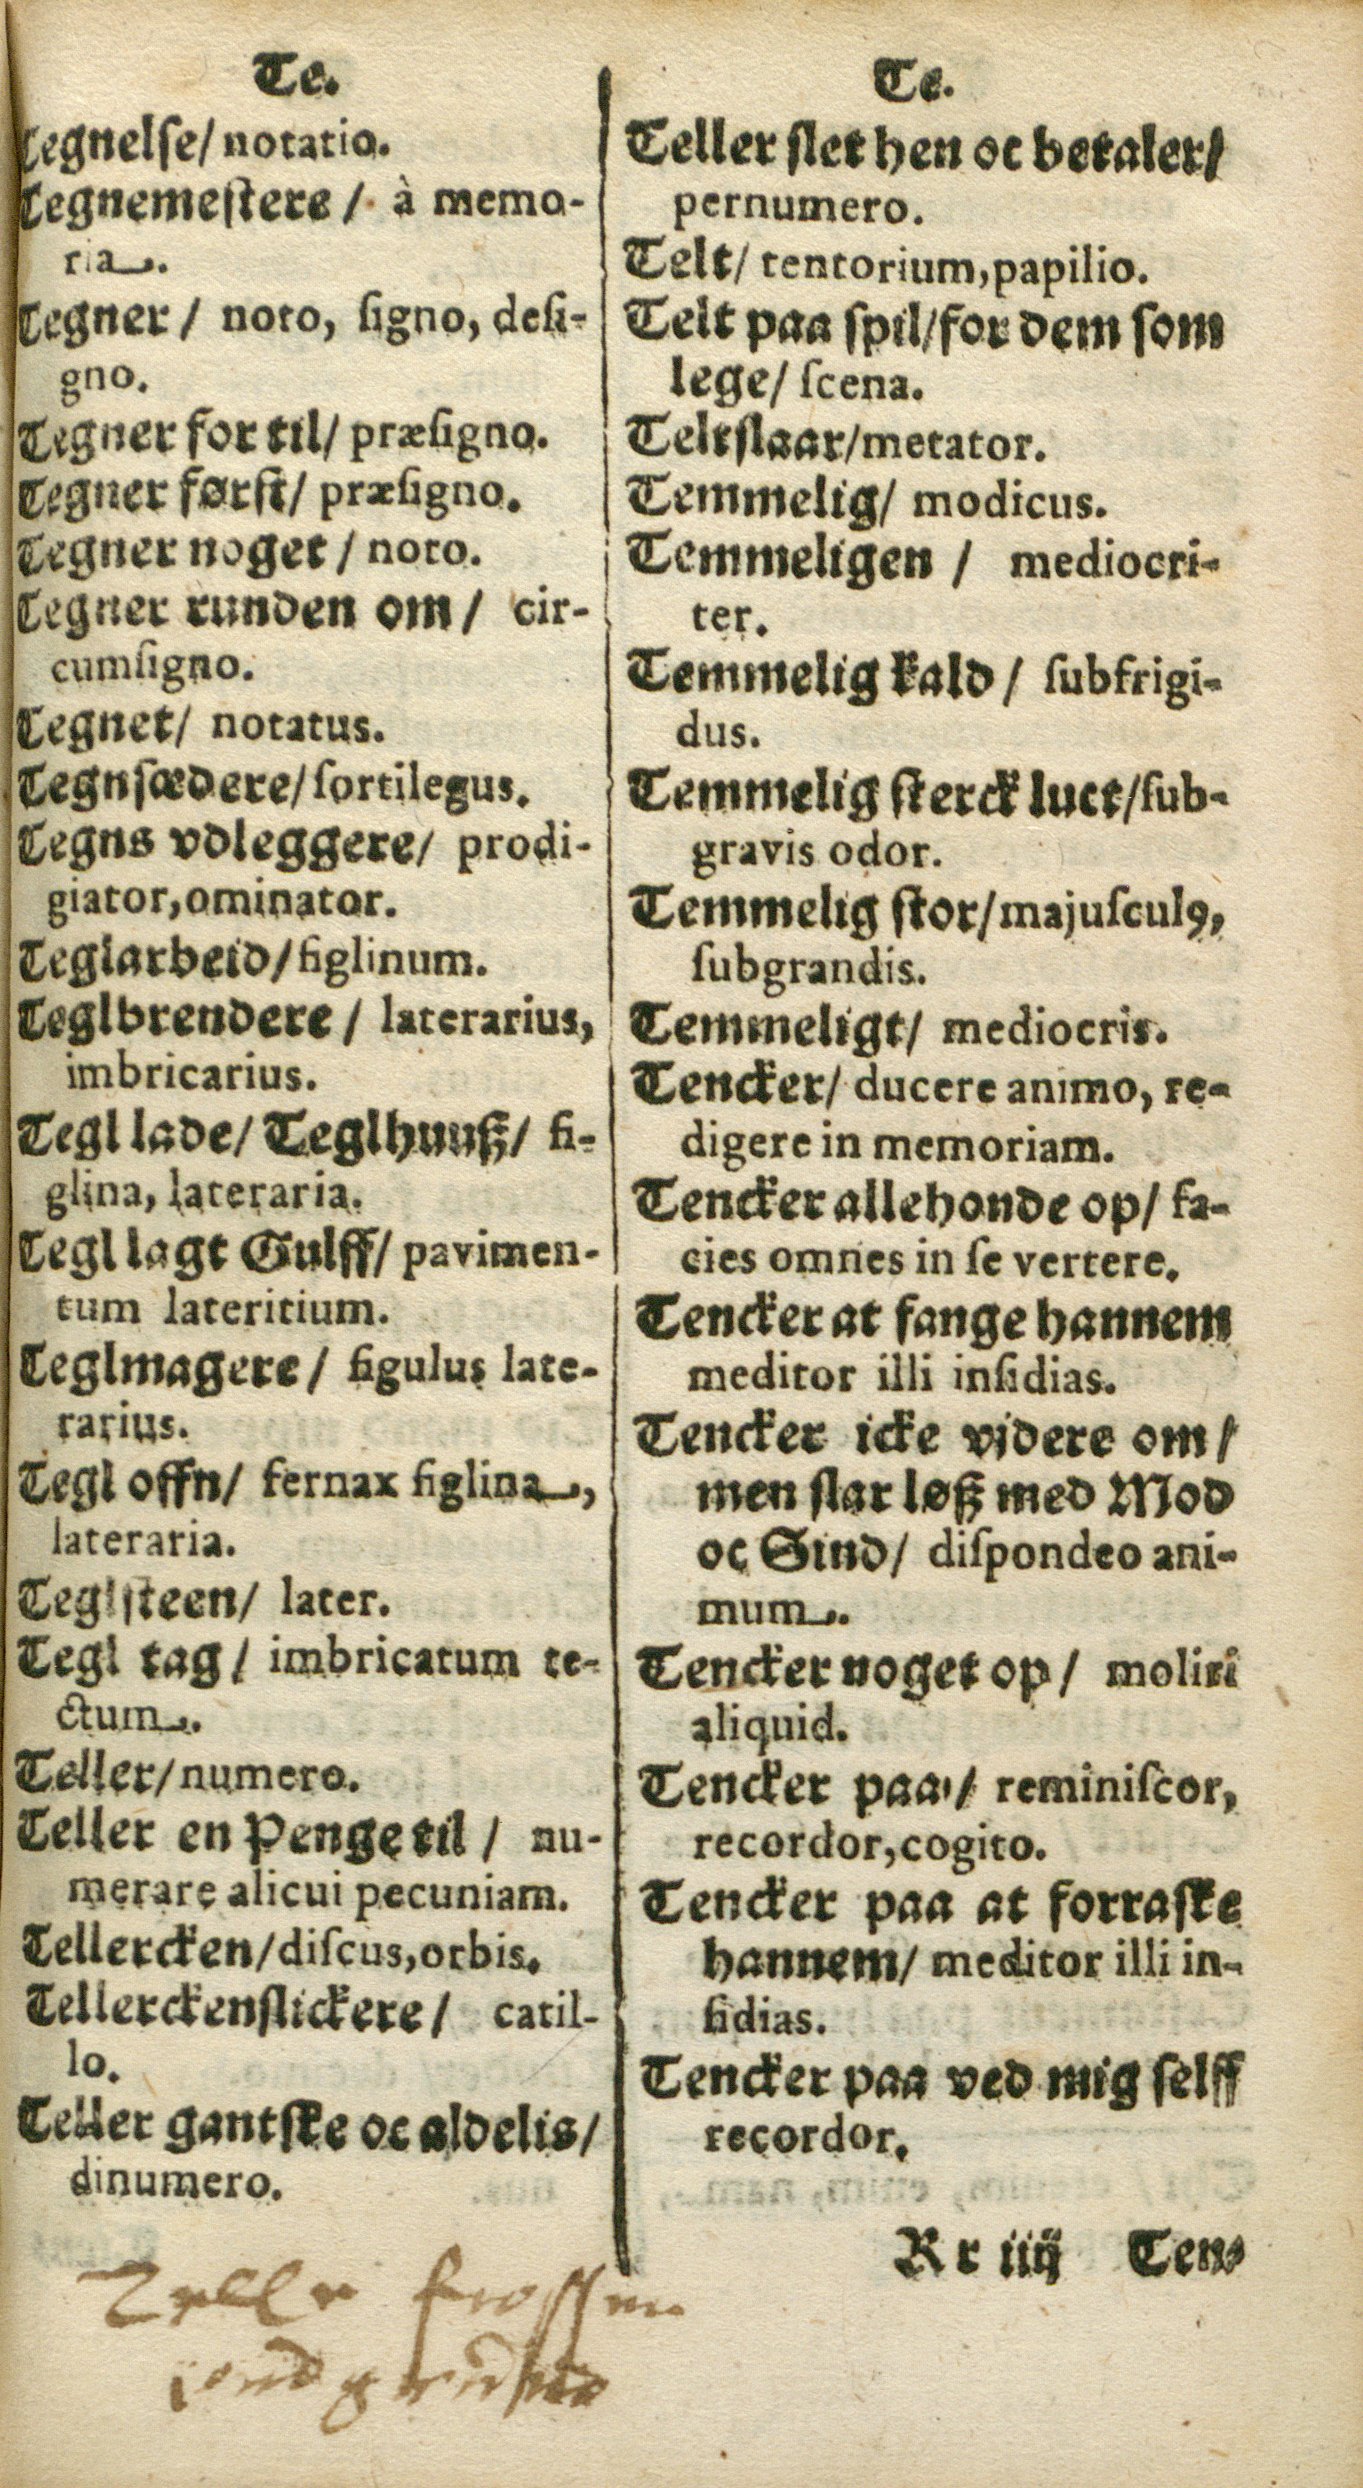 Te.
Tegnelſe/ notatio.
Tegnemeſtere / à memo-
ria.
Tegner / noto, ſigno, deſi-
gno.
Tegner for til/ præſigno.
Tegner førſt/ præſigno.
Tegner noget / noto.
Tegner runden om / cir-
cumſigno.
Tegnet/ notatus.
Tegnſædere/ ſortilegus.
Tegns vdleggere/ prodi-
giator, ominator.
Teglarbeid/ figlinum.
Teglbrendere / laterarius,
imbricarius.
Tegl lade/ Teglhuuß/ fi-
glina, lateraria.
Tegl lagt Gulff/ pavimen-
tum lateritium.
Teglmagere / figulus late-
rarius.
Tegl offn/ fernax figlina,
lateraria.
Teglſteen/ later.
Tegl tag / imbricatum te-
ctum.
Teller/ numero.
Teller en Penge til / nu-
merare alicui pecuniam.
Tellercken/ diſcus, orbis.
Tellerckenſlickere / catil-
lo.
Teller gantſke oc aldelis/
dinumero.
Te.
Teller ſlet hen oc betaler/
pernumero.
Telt/ tentorium, papilio.
Telt paa ſpil/ for dem ſom
lege/ ſcena.
Teltſlaar/ metator.
Temmelig/ modicus.
Temmeligen / mediocri-
ter.
Temmelig kald / ſubfrigi-
dus.
Temmelig ſterck luct/ ſub-
gravis odor.
Temmelig ſtor/ majuſculꝰ,
ſubgrandis.
Temmeligt/ mediocris.
Tencker/ ducere animo, re-
digere in memoriam.
Tencker allehonde op/ fa-
cies omnes in ſe vertere.
Tencker at fange hannem
meditor illi inſidias.
Tencker icke vjdere om /
men ſlar løß med Mod
oc Sind/ diſpondeo ani-
mum.
Tencker noget op / moliri
aliquid.
Tencker paa / reminiſcor,
recordor, cogito.
Tencker paa at forraſke
hannem/ meditor illi in-
ſidias.
Tencker paa ved mig ſelff
recordor.
Rr iiij Ten-